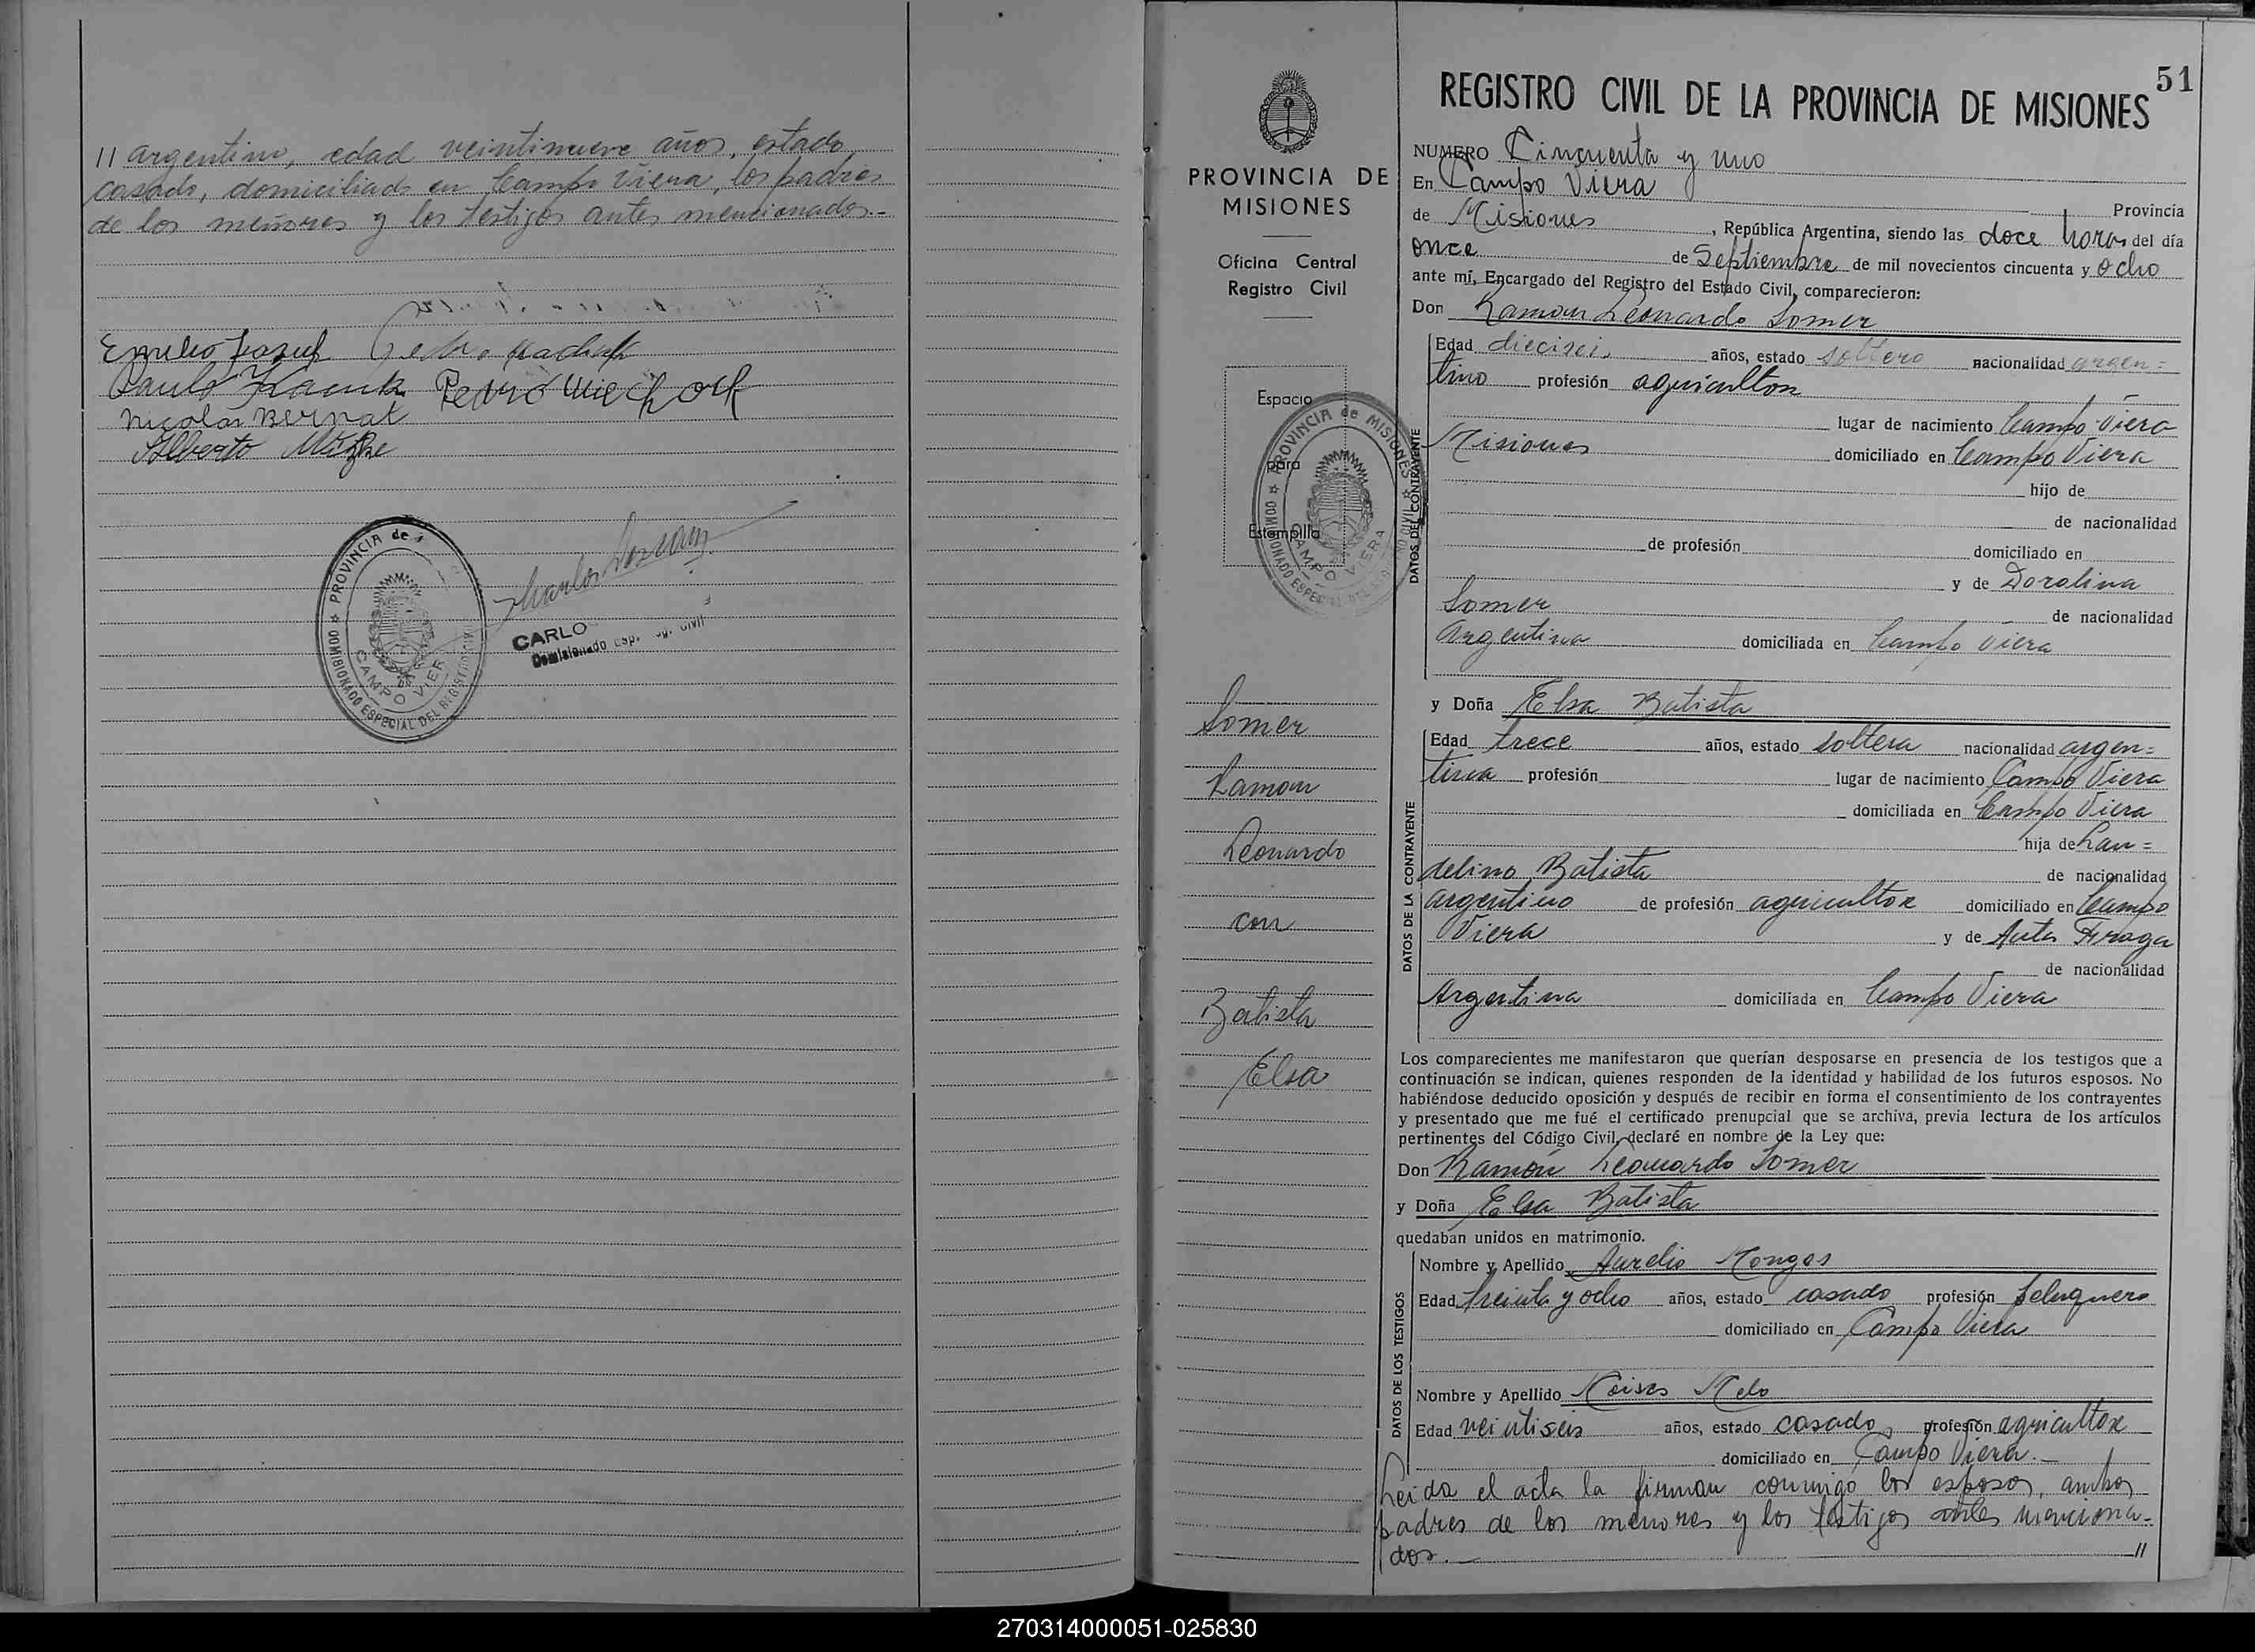 // argentino, edad veintinueve años, estado
casado, domiciliado en Campo Viera, los padres
de los menores y los testigos antes mencionados.-
Nicolás Bernat
Alberto
PROVINCIA de
COMISIONADO ESPECIAL DEL REGISTRO CIVIL
CAMPO VIERA
CARLO
Comisionado Esp. Reg. Civil
PROVINCIA DE
MISIONES
Oficina Central
Registro Civil
Espacio
para
Estampilla
PROVINCIA de MISIONES
COMISIONADO ESPECIAL DEL
CAMPO VIERA
Somer
Ramon
Leonardo
con
Batista
Elsa
51
REGISTRO CIVIL DE LA PROVINCIA DE MISIONES
NUMERO Cincuenta y uno
En Campo Viera
Provincia
de Misiones, República Argentina, siendo las doce horas del día
once de Septiembre de mil novecientos cincuenta y ocho
ante mí, Encargado del Registro del Estado Civil, comparecieron:
Don Ramon Leonardo Somer
DATOS DEL CONTRAYENTE
Edad dieciseis años, estado soltero nacionalidad argen=
tino profesión agricultor
lugar de nacimiento Campo Viera
Misiones domiciliado en Campo Viera
hijo de
de nacionalidad
de profesión domiciliado en
y de Doralina
Somer de nacionalidad
Argentina domiciliada en Campo Viera
y Doña Elsa Batista
DATOS DE LA CONTRAYENTE
Edad trece años, estado soltera nacionalidad argen=
tina profesión lugar de nacimiento Campo Viera
domiciliada en Campo Viera
hija de Lau=
delino Batista de nacionalidad
argentino de profesión agricultor domiciliado en Campo
Viera y de Fraga
de nacionalidad
Argentina domiciliada en Campo Viera
Los comparecientes me manifestaron que querían desposarse en presencia de los testigos que a
continuación se indican, quienes responden de la identidad y habilidad de los futuros esposos. No
habiéndose deducido oposición y después de recibir en forma el consentimiento de los contrayentes
y presentado que me fué el certificado prenupcial que se archiva, previa lectura de los artículos
pertinentes del Código Civil, declaré en nombre de la Ley que:
Don Ramón Leonardo Somer
y Doña Elsa Batista
quedaban unidos en matrimonio.
DATOS DE LOS TESTIGOS
Nombre y Apellido Aurelio Mongos
Edad treinta y ocho años, estado casado profesión peluquero
domiciliado en Campo Viera
Nombre y Apellido Moises Melo
Edad veintiseis años, estado casado profesión agricultor
domiciliado en Campo Viera.-
Leida el acta la firman conmigo los esposos, ambos
padres de los menores y los testigos antes menciona-
dos.- //
270314000051-025830